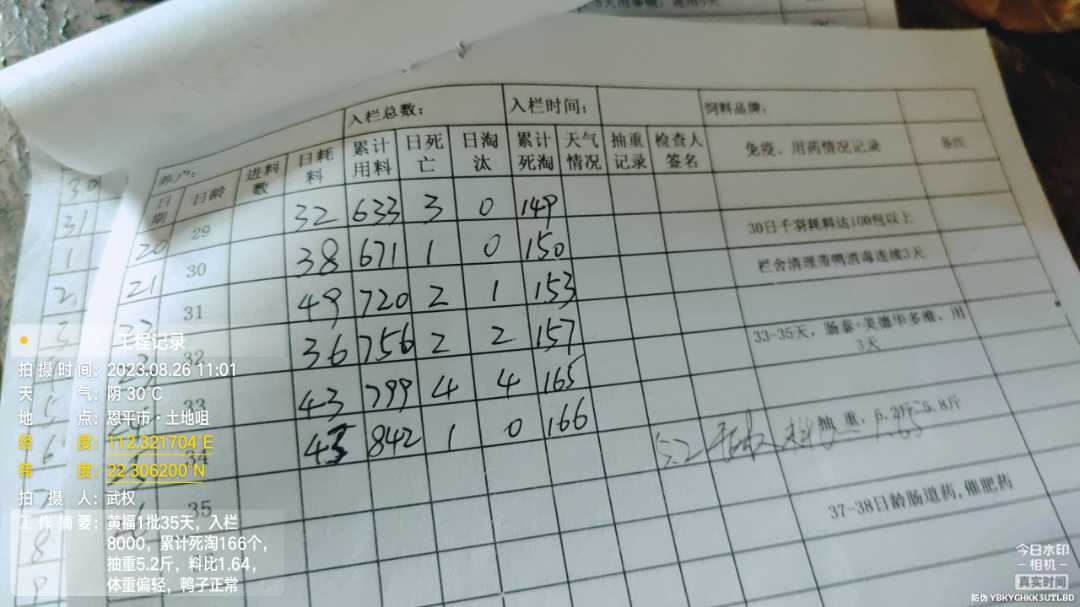 入栏总数: 入栏时间: 饲料品牌:
养户:
日期 日龄 进料数 日耗料 累计用料 日死亡 日淘汰 累计死淘 天气情况 抽重记录 检查人签名 免疫、用药情况记录 备注
20 29 32 633 3 0 149
21 30 38 671 1 0 150 30日千羽耗料达100包以上
31 49 720 2 1 153 栏舍清理带鸭消毒连续3天
32 36 756 2 2 157
33 43 799 4 4 165 33-35天,肠泰+美德华多维,用3天
34 43 842 1 0 166 5.2 抽重: 5.2斤-5.8斤
35
37-38日龄肠道药,催肥药
30
31
1
2
3
5
6
8
9
工程记录
拍摄时间: 2023.08.26 11:01
天气: 阴 30℃
地点: 恩平市·土地咀
经度: 112.321704°E
纬度: 22.306200°N
拍摄人: 武权
工作摘要: 黄福1批35天,入栏
8000,累计死淘166个,
抽重5.2斤,料比1.64,
体重偏轻,鸭子正常
今日水印
-相机-
真实时间
防伪 YBKYGHKK3UTLBD